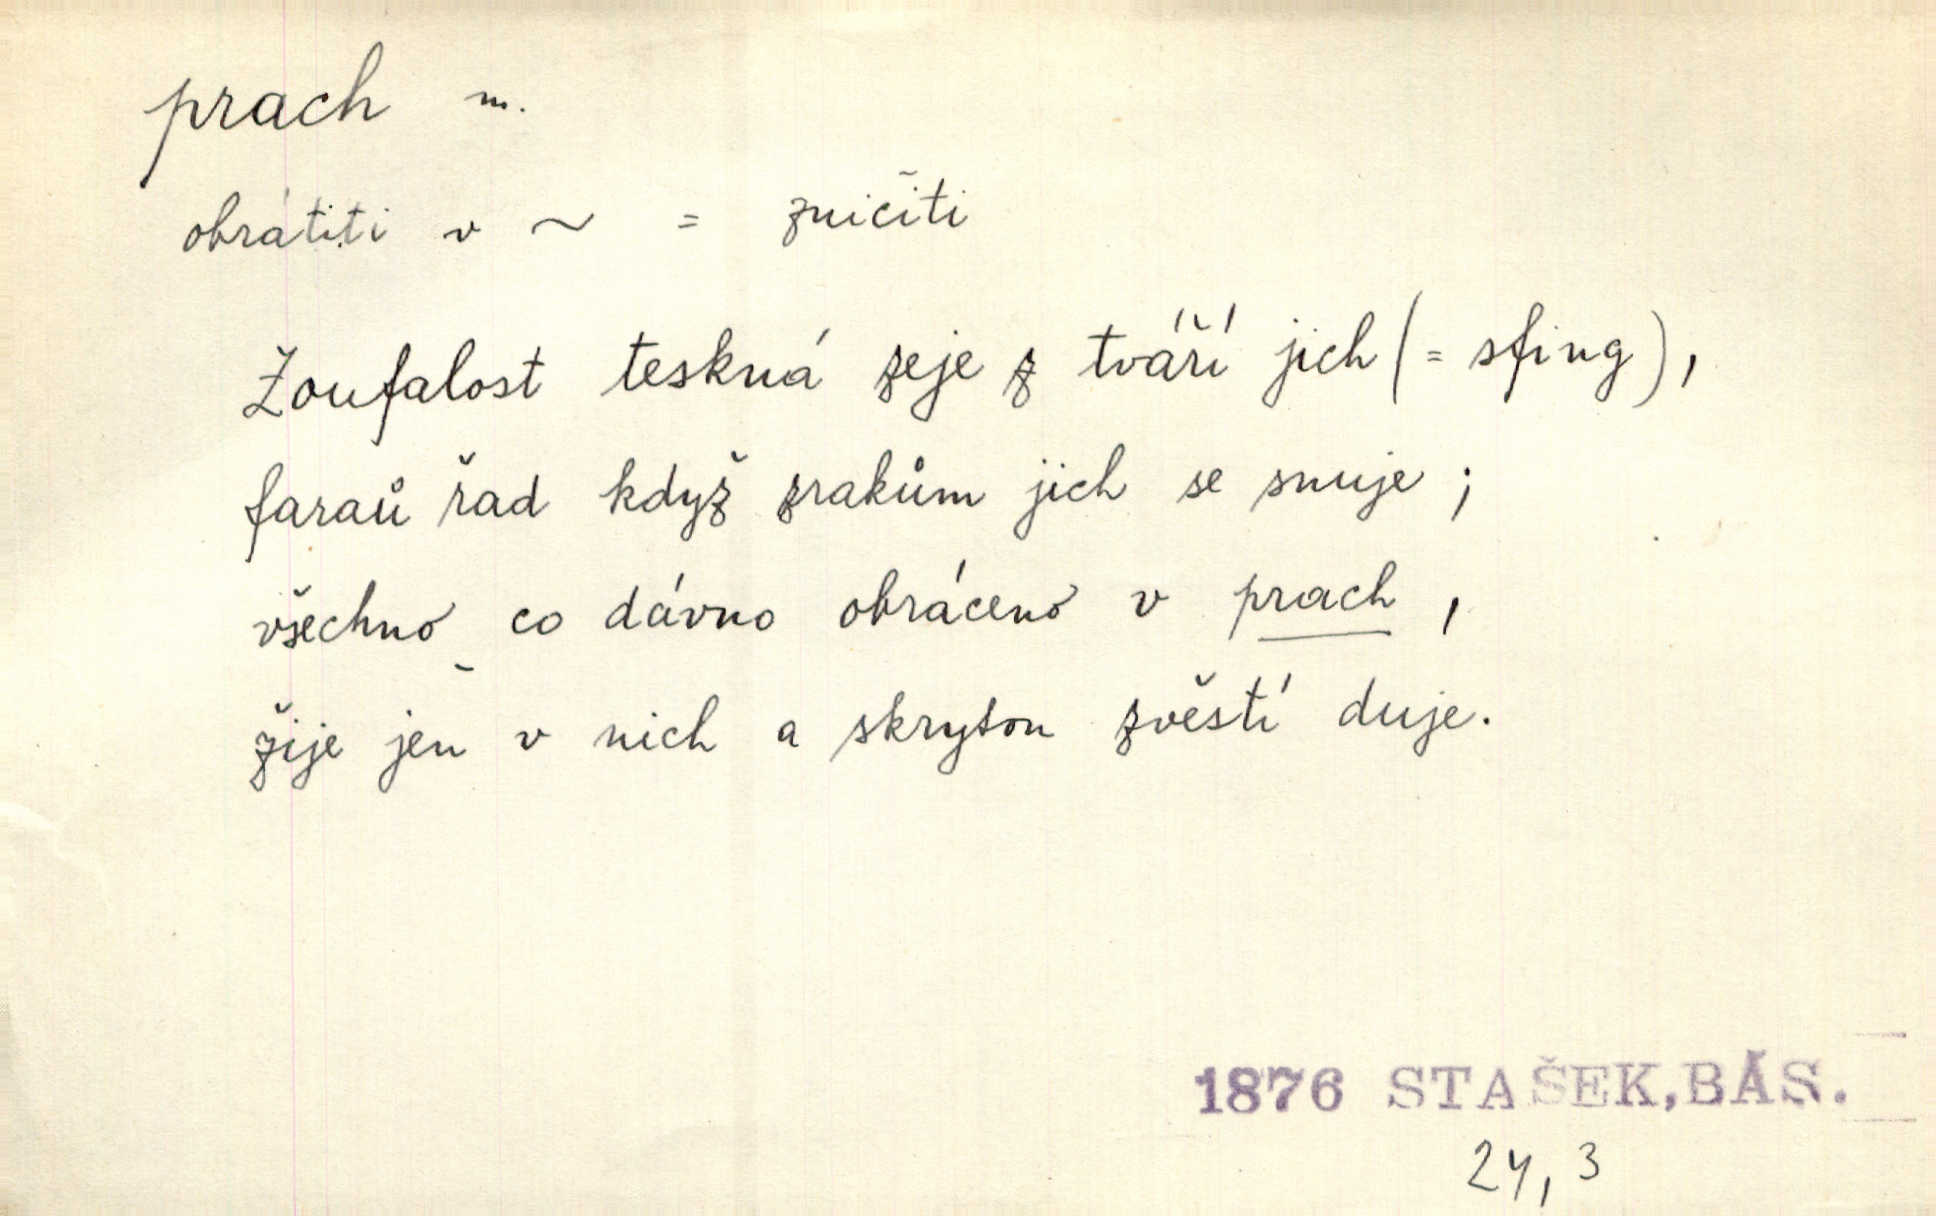 prach m.
obrátiti v ~ = zničiti
Zoufalost teskná zeje z tváří jich (= sfing),
faraů řad když zrakům jich se snuje ;
všechno co dávno obráceno v prach ,
žije jen v nich a skrytou zvěstí duje.
1876 STAŠEK, BÁS.
24, 3